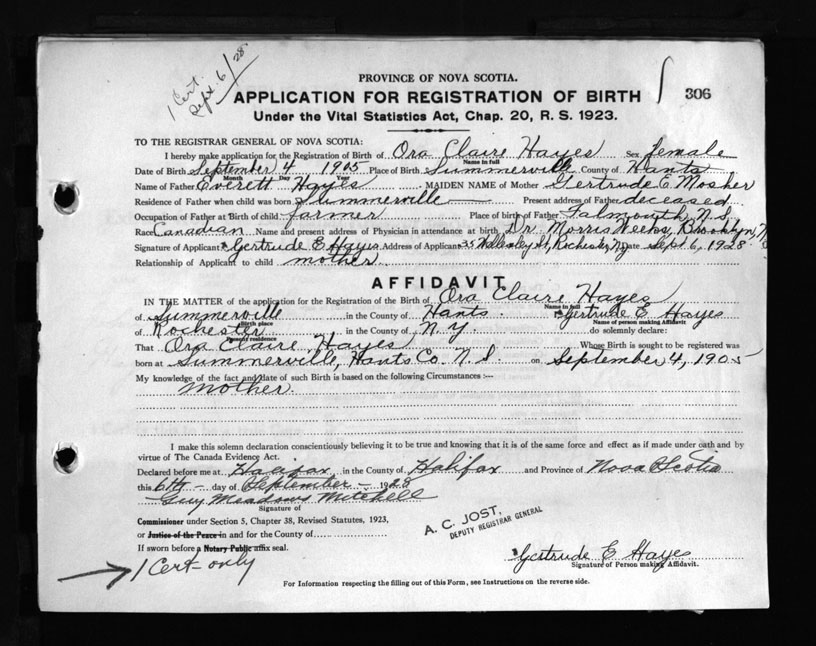 1 Cert.
Sept. 6/28
PROVINCE OF NOVA SCOTIA.
306
APPLICATION FOR REGISTRATION OF BIRTH
Under the Vital Statistics Act, Chap. 20, R. S. 1923.
TO THE REGISTRAR GENERAL OF NOVA SCOTIA:
I hereby make application for the Registration of Birth of Ora Claire Hayes Sex female
Name in full
Date of Birth September 4 1905 Place of Birth Summerville County of Hants
Month Day Year
Name of Father Everett Hayes MAIDEN NAME of Mother Gertrude E Mosher
Residence of Father when child was born Summerville Present address of Father deceased
Occupation of Father at Birth of child farmer Place of birth of Father Falmouth, N.S.
Race Canadian Name and present address of Physician in attendance at birth Dr. Morris Weeks, Brooklyn, N
Signature of Applicant Gertrude E Hayes Address of Applicant 35 Wellesley St, Rochester, NY Date Sept. 6, 1928
Relationship of Applicant to child mother
AFFIDAVIT
IN THE MATTER of the application for the Registration of the Birth of Ora Claire Hayes
Name in full
of Summerville in the County of Hants. Gertrude E Hayes
Birth place Name of person making Affidavit
of Rochester in the County of N.Y. do solemnly declare:
Present residence
That Ora Claire Hayes Whose Birth is sought to be registered was
born at Summerville, Hants Co. N.S. on September 4, 1905
My knowledge of the fact and date of such Birth is based on the following Circumstances :—
mother.
I make this solemn declaration conscientiously believing it to be true and knowing that it is of the same force and effect as if made under oath and by
virtue of The Canada Evidence Act.
Declared before me at Halifax in the County of Halifax and Province of Nova Scotia
this 6th day of September 1928
Guy Meadows Mitchell
Signature of
Commissioner under Section 5, Chapter 38, Revised Statutes, 1923,
A. C. JOST,
DEPUTY REGISTRAR GENERAL
or Justice of the Peace in and for the County of
If sworn before a Notary Public affix seal.
Gertrude E Hayes
Signature of Person making Affidavit.
1 Cert only
For Information respecting the filling out of this Form, see Instructions on the reverse side.